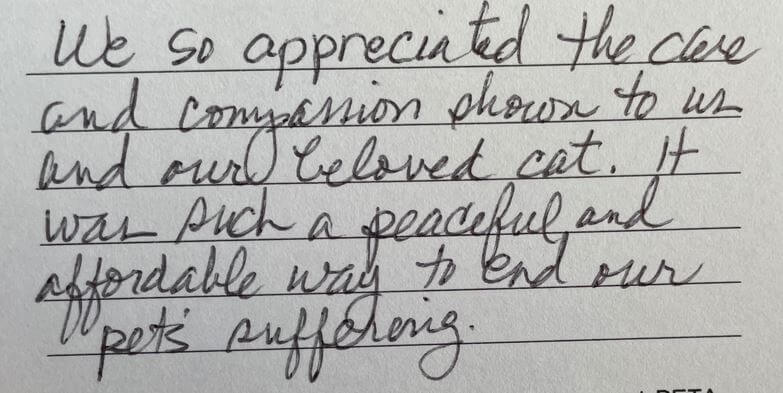 We so appreciated the care
and compassion shown to us
and our beloved cat. It
was such a peaceful and
affordable way to end our
pet's suffering.